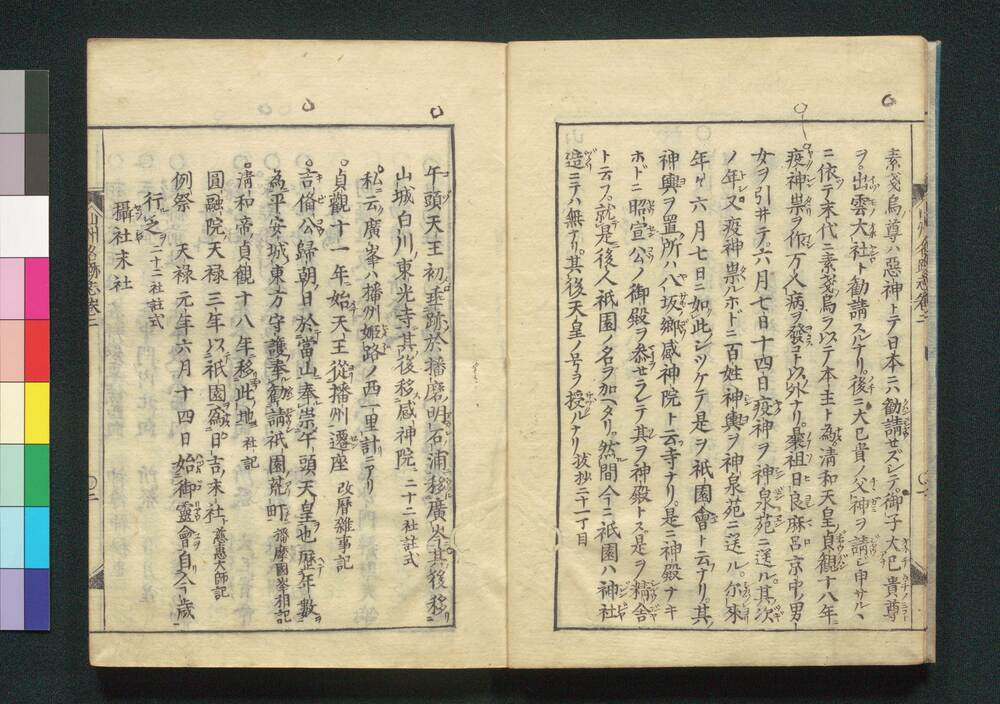 素戔烏尊ハ惡神トテ日本ニハ勧請セズシテ御子大已貴尊
ヲ出雲大社ト勧請スルナリ後ニ大已貴ノ父神ヲ請ジ申サル丶
ニ依テ末代ニ素戔烏ヲ以テ本主ト為清和天皇貞觀十八年
疫神祟ヲ作万人病ヲ發コト以外ナリ曩祖日良麻呂京中ノ男
女ヲ引井テ六月七日十四日疫神ヲ神泉苑ニ送ル其次
ノ年又疫神祟ルホドニ百姓神輿ヲ神泉苑ニ送ル尓來
年々六月七日ニ如此シツケテ是ヲ祇園會ト云ナリ其
神輿ヲ置所ハ八坂郷感神院ト云寺ナリ是ニ神殿ナキ
ホドニ昭宣公ノ御殿ヲ恭セラレテ其ヲ神殿トス是ヲ精舎
ト云フ就是後人祇園ノ名ヲ加ヘタリ然間今ニ祇園ハ神社
造ニテハ無ナリ其後天皇ノ号ヲ授ルナリ 抜抄二十一丁目
山州名跡志卷二
〇二
牛頭天王初垂跡於播磨明石浦移廣峯其後移
山城白川東光寺其後移感神院 二十二社註式
私ニ云廣峯ハ播州姫路ノ西一里計ニアリ
貞觀十一年始天王從播州遷座 改暦雜事記
吉備公歸朝日於當山奉祟牛頭天皇也歴年數
為平安城東方守護奉勧請祇園荒町 播摩國峯相記
清和帝貞觀十八年移此地 社記
圓融院天禄三年以祇園為日吉末社 慈惠大師記
例祭 天禄元年六月十四日始御靈會自今歳
行之 二十二社註式
攝社末社
山州名跡志卷二
〇二